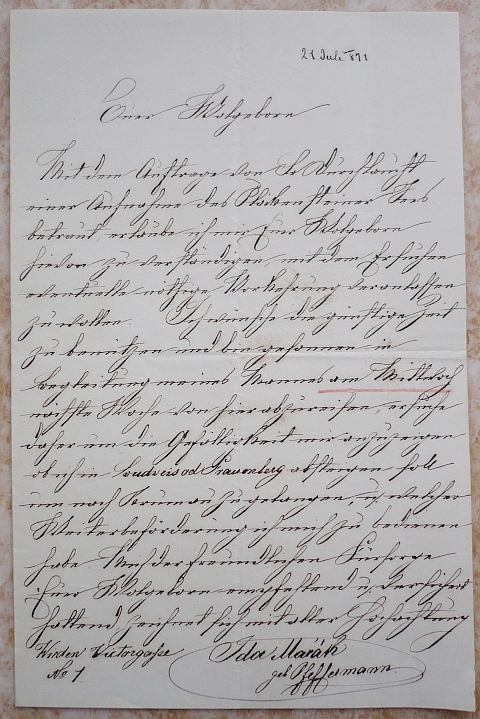 21 Juli 871
Euer Wolgeborn
Mit dem Auftrage von Sr Durchlaucht
einer Aufnahme des Plöckensteiner Sees
betraut, erlaube ich mir Euer Wolgeborn
hievon zu verständigen, mit dem Ersuchen
eventuelle nöthige Vorkehrung veranlassen
zu wollen. Ich wünsche die günstige Zeit
zu benützen und bin gesonnen in
Begleitung meines Mannes am Mittwoch
nächste Woche von hier abzureisen, ersuche
daher um die Gefälligkeit mir anzuzeigen
ob ich in Budweis od Frauenberg absteigen soll
um nach Krumau zu gelangen u. welcher
Weiterbeförderung ich mich zu bedienen
habe. Mich der freundlichen Fürsorge
Euer Wolgeborn empfehlend u. versichert
haltend, zeichnet sich mit aller Hochachtung
Ida Mařák
geb Pfeffermann
Wieden Victorgasse
No 1